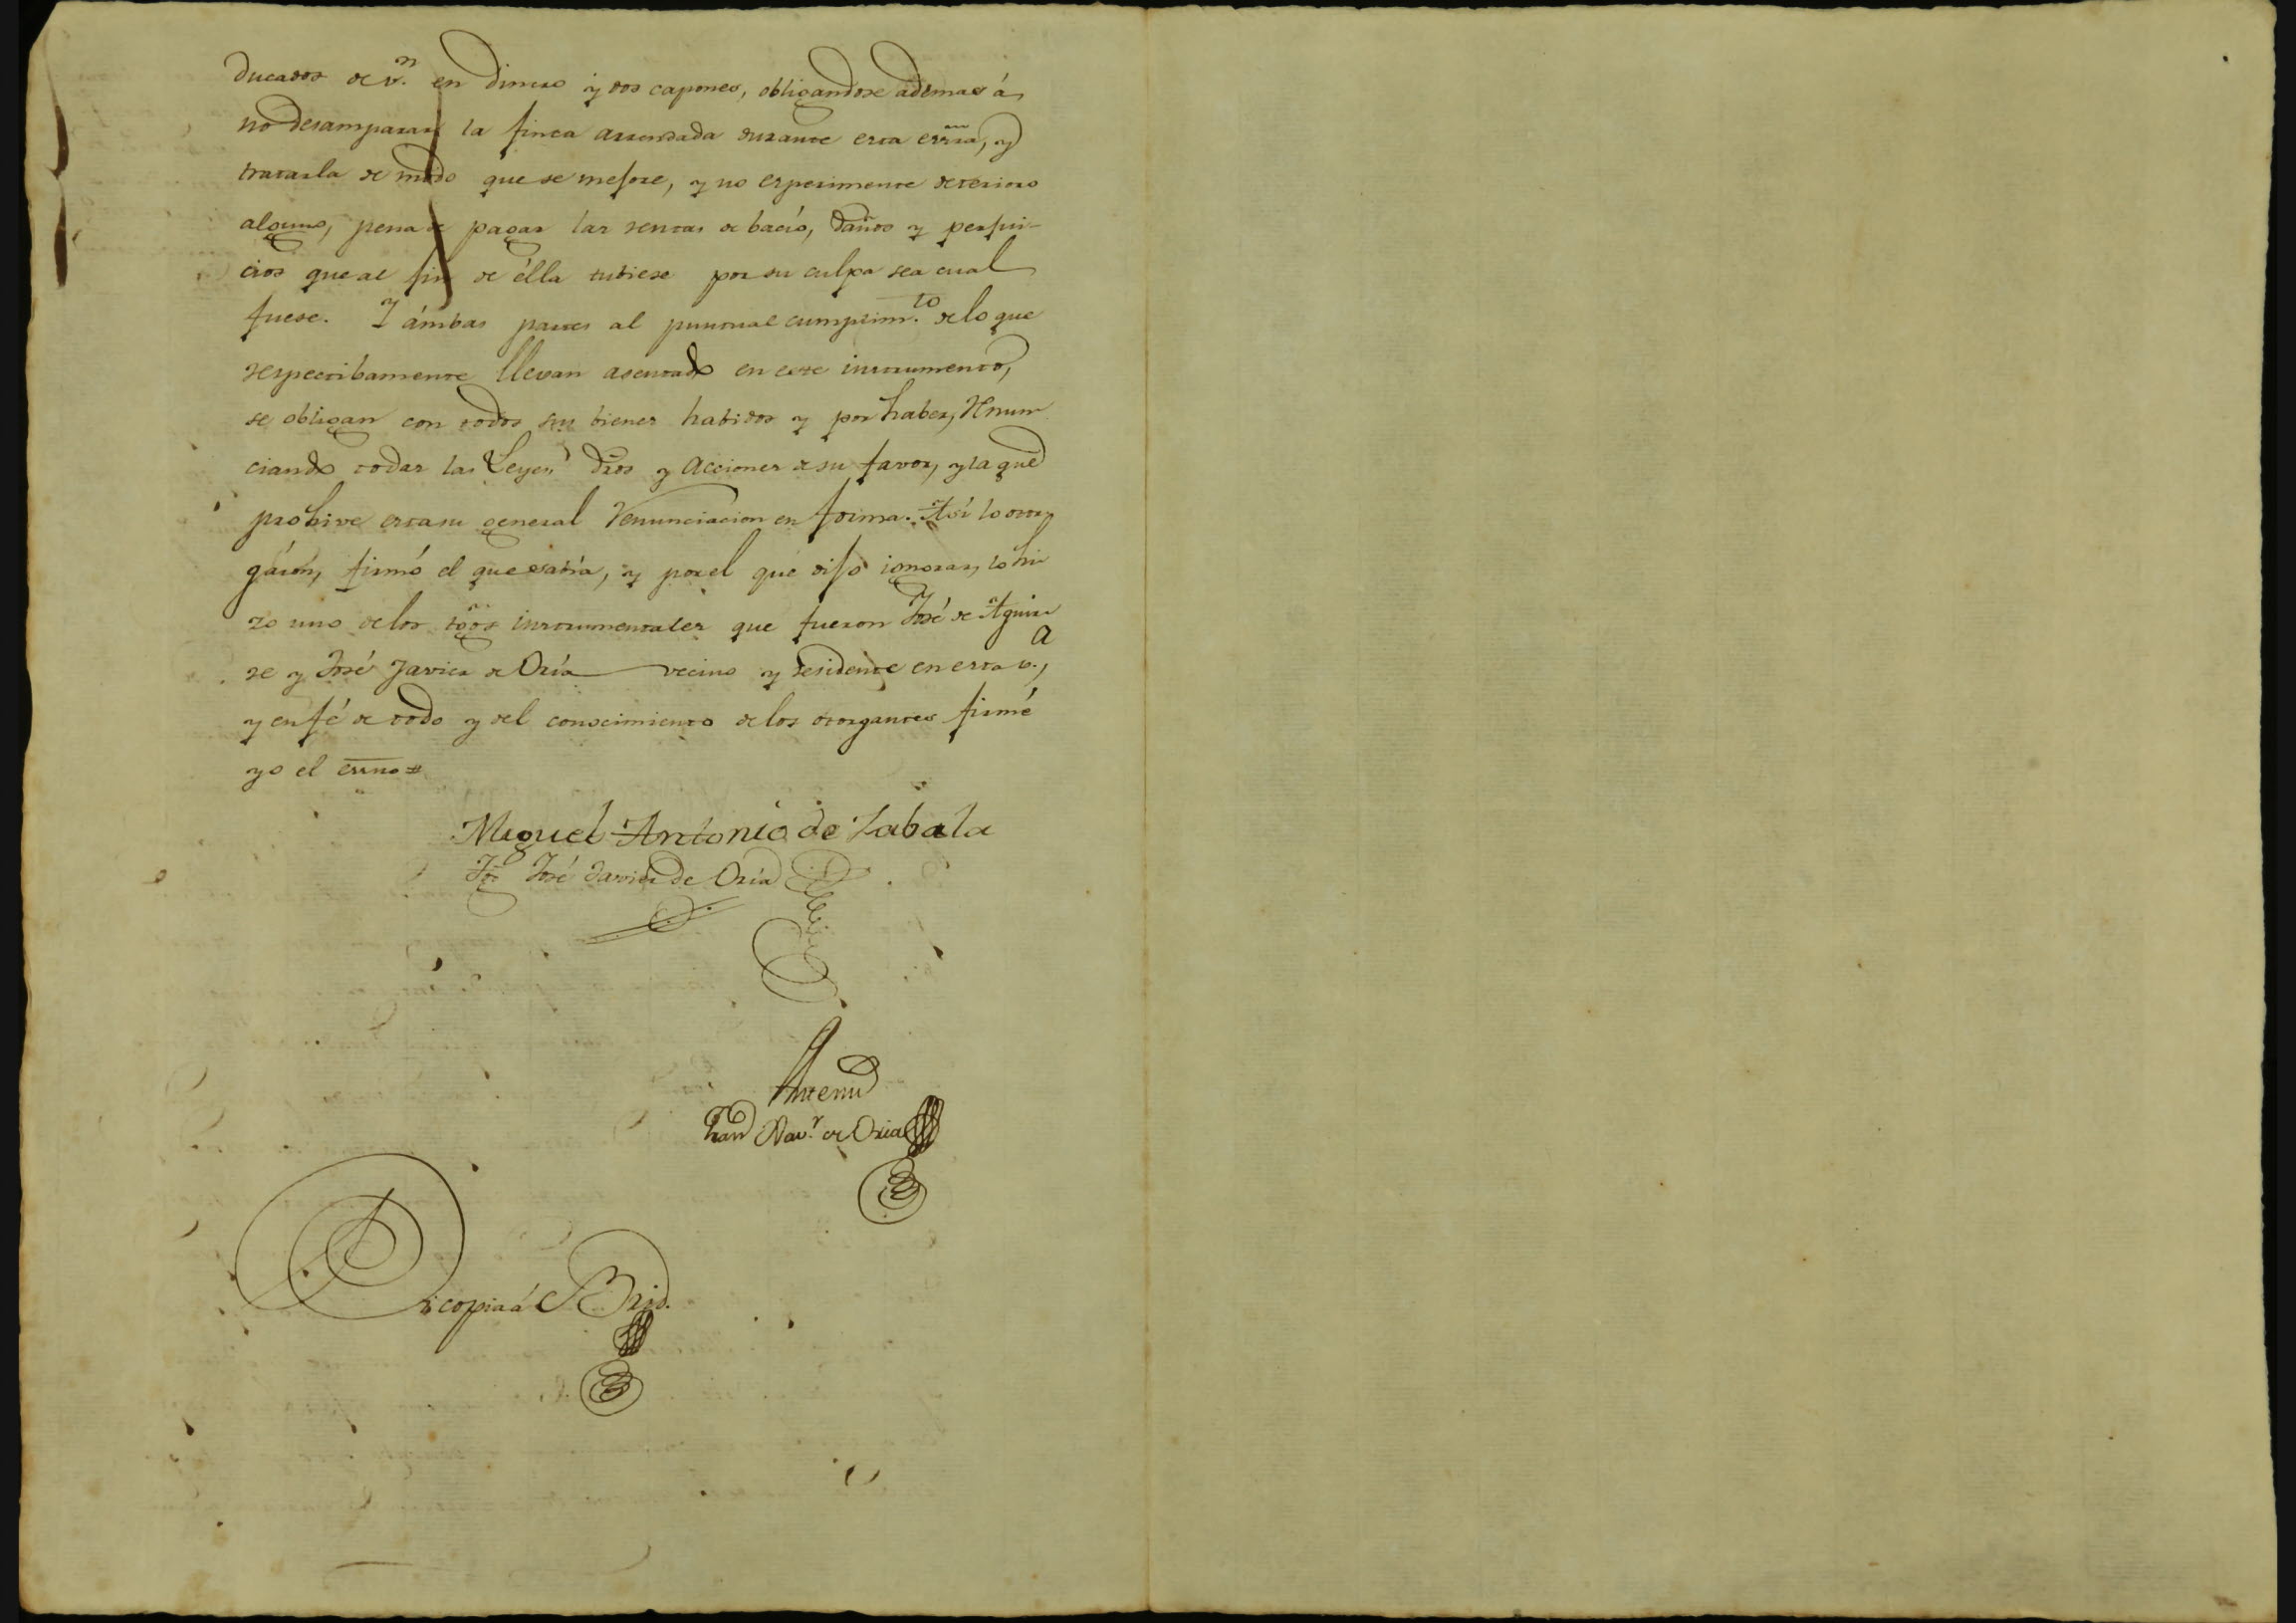 ducados de v.n en dinero y dos capones, obligandose ademas á
no desamparar la finca arrendada durante esta esrra, y
tratarla de modo que se mejore, y no esperimente deterioro
alguno, pena de pagar las rentas de bacío, daños y perjui-
cios que al fin de élla tubiese por su culpa sea cual
fuese. Y ámbas partes al puntual cumplim.to de lo que
respectibamente llevan asentado en este instrumento,
se obligan con todos sus bienes habidos y por haber, Renun
ciando todas las Leyes dros y Acciones de su favor, y la que
prohive esta su general renunciacion en forma. Así lo otor
gáron, firmó el que sabía, y por el que dijo ignorar, lo hi
zo uno de los tgos instrumentales que fueron José de Aguir
re y José Javier de Oria vecino y residente en esta v.a,
y en fé de todo y del conocimiento de los otorgantes firmé
yo el esrno=
Miguel Antonio de Zabala
Tgo José Javier de Oria
Antemi
Fran Xav.r de Oria